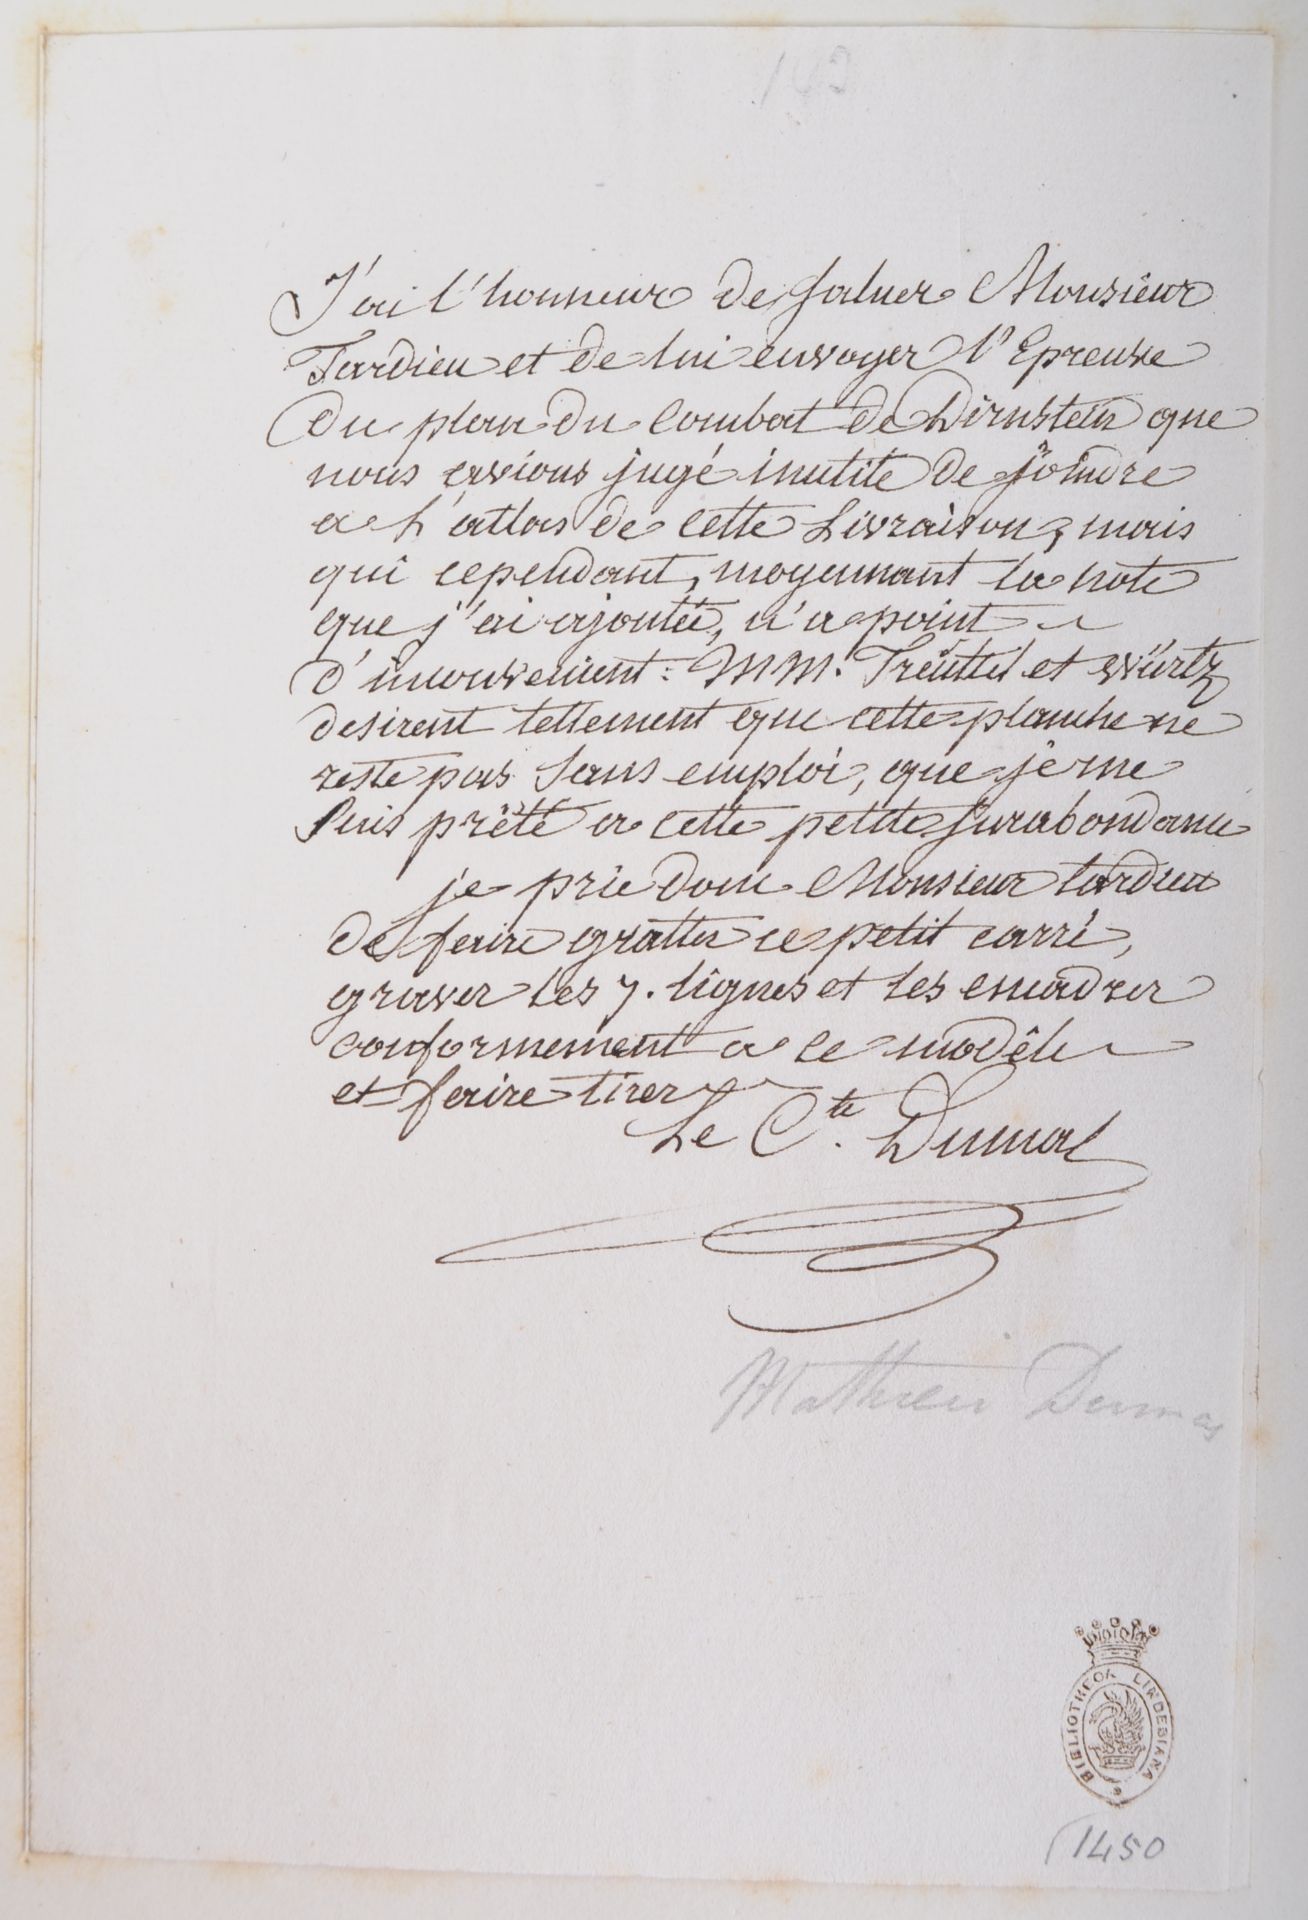 142
J'ai l'honneur de saluer Monsieur
Tardieu et de lui envoyer l'Epreuve
du plan du Combat de Dirnstein que
nous avions jugé inutile de joindre
a l'atlas de cette Livraison, mais
qui cependant, moyennant la note
que j'ai ajoutée, n'a point
d'inconvenient : MM. Treüttel et Würtz
desirent tellement que cette planche ne
reste pas sans emploi, que je me
suis prêté a cette petite surabondance
je prie donc Monsieur tardieu
de faire gratter ce petit carré,
graver les 7. lignes et les encadrer
conformement a ce modêle
et faire tirer
Le Cte. Dumas
Mathieu Dumas
BIBLIOTHECA LINDESIANA
1450